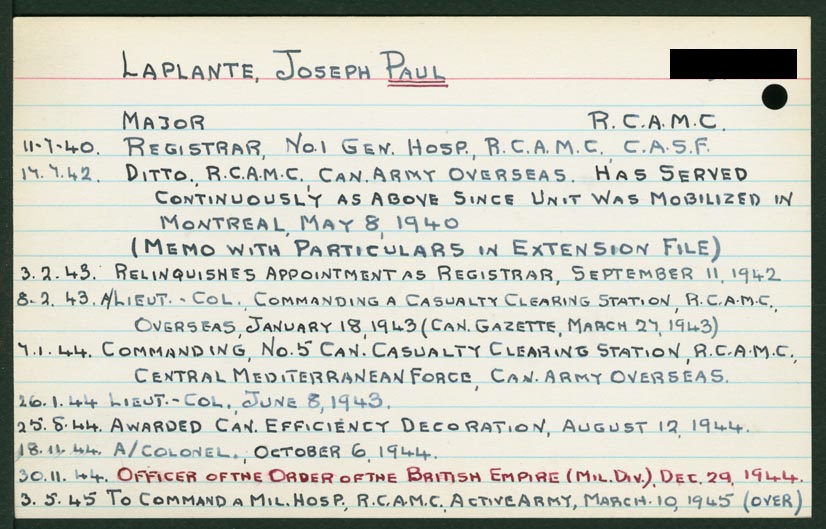 LAPLANTE, JOSEPH PAUL
MAJOR R.C.A.M.C.
11-7-40. REGISTRAR, NO.1 GEN. HOSP., R.C.A.M.C., C.A.S.F.
17.7.42. DITTO., R.C.A.M.C., CAN. ARMY OVERSEAS. HAS SERVED
CONTINUOUSLY AS ABOVE SINCE UNIT WAS MOBILIZED IN
MONTREAL, MAY 8, 1940
(MEMO WITH PARTICULARS IN EXTENSION FILE)
3.2.43. RELINQUISHES APPOINTMENT AS REGISTRAR, SEPTEMBER 11, 1942
8-2.43. A/LIEUT.-COL., COMMANDING A CASUALTY CLEARING STATION, R.C.A.M.C.,
OVERSEAS, JANUARY 18, 1943 (CAN. GAZETTE, MARCH 27, 1943)
7.1.44. COMMANDING, NO.5 CAN. CASUALTY CLEARING STATION, R.C.A.M.C.,
CENTRAL MEDITERRANEAN FORCE, CAN. ARMY OVERSEAS.
26.1.44 LIEUT.-COL., JUNE 8, 1943.
25.8.44. AWARDED CAN. EFFICIENCY DECORATION, AUGUST 12, 1944.
18.11.44. A/COLONEL., OCTOBER 6, 1944.
30.11.44. OFFICER OF THE ORDER OF THE BRITISH EMPIRE (MIL. DIV.), DEC. 29, 1944.
3.5.45 TO COMMAND A MIL. HOSP., R.C.A.M.C., ACTIVE ARMY, MARCH 10, 1945 (OVER)